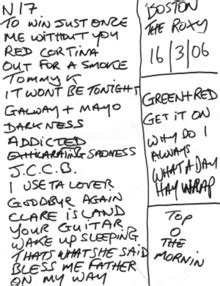 N17.
TO WIN JUST ONCE
ME WITHOUT YOU
RED CORTINA
OUT FOR A SMOKE
TOMMY K
IT WONT BE TONIGHT
GALWAY + MAYO
DARKNESS
ADDICTED
EXHILARATING SADNESS
J.C.C.B.
I USE TA LOVER
GOODBYE AGAIN
CLARE ISLAND
YOUR GUITAR
WAKE UP SLEEPING
THATS WHAT SHE SAID
BLESS ME FATHER
ON MY WAY
BOSTON
THE ROXY
16/3/06
GREEN + RED
GET IT ON
WHY DO I
ALWAYS
WHAT A DAY
HAY WRAP
TOP
O
THE
MORNIN